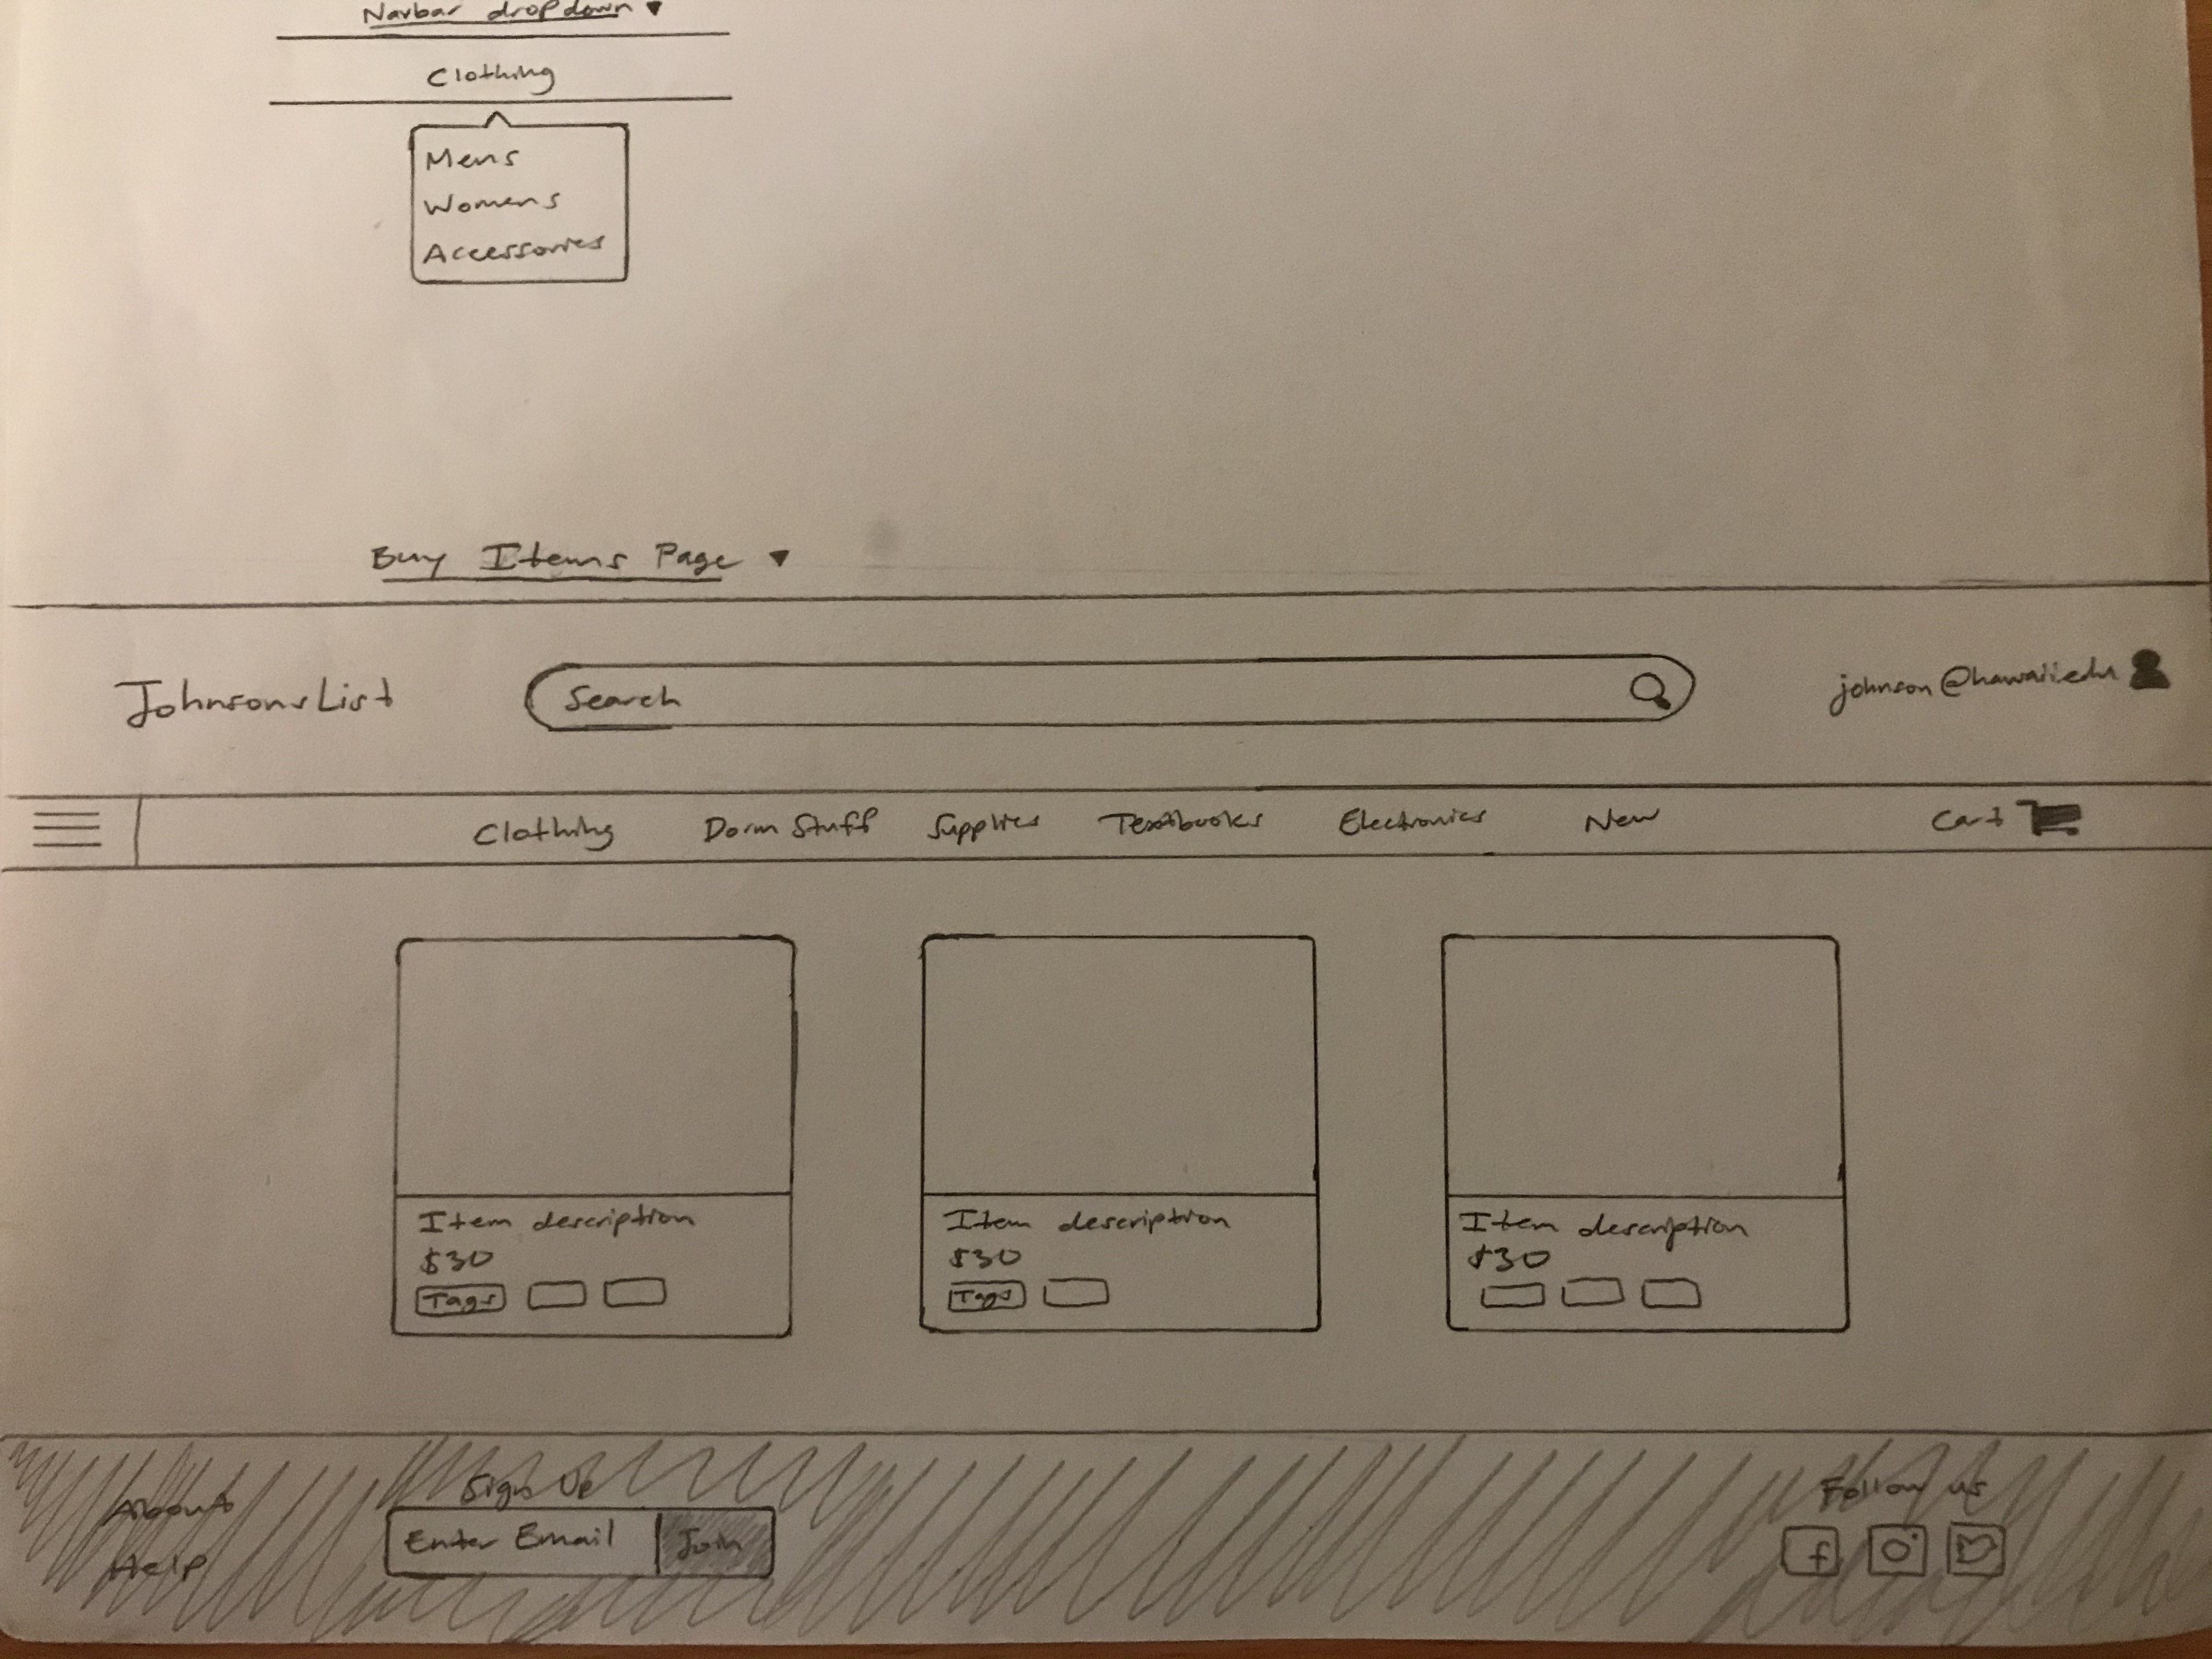 Navbar dropdown
Clothing
Mens
Womens
Accessories
Buy Items Page
JohnsonsList
Search
johnson@hawaii.edu
Clothing Dorm Stuff Supplies Textbooks Electronics New Cart
Item description
$30
Tags
Item description
$30
Tags
Item description
$30
About
Help
Sign Up
Enter Email Join
Follow us
f